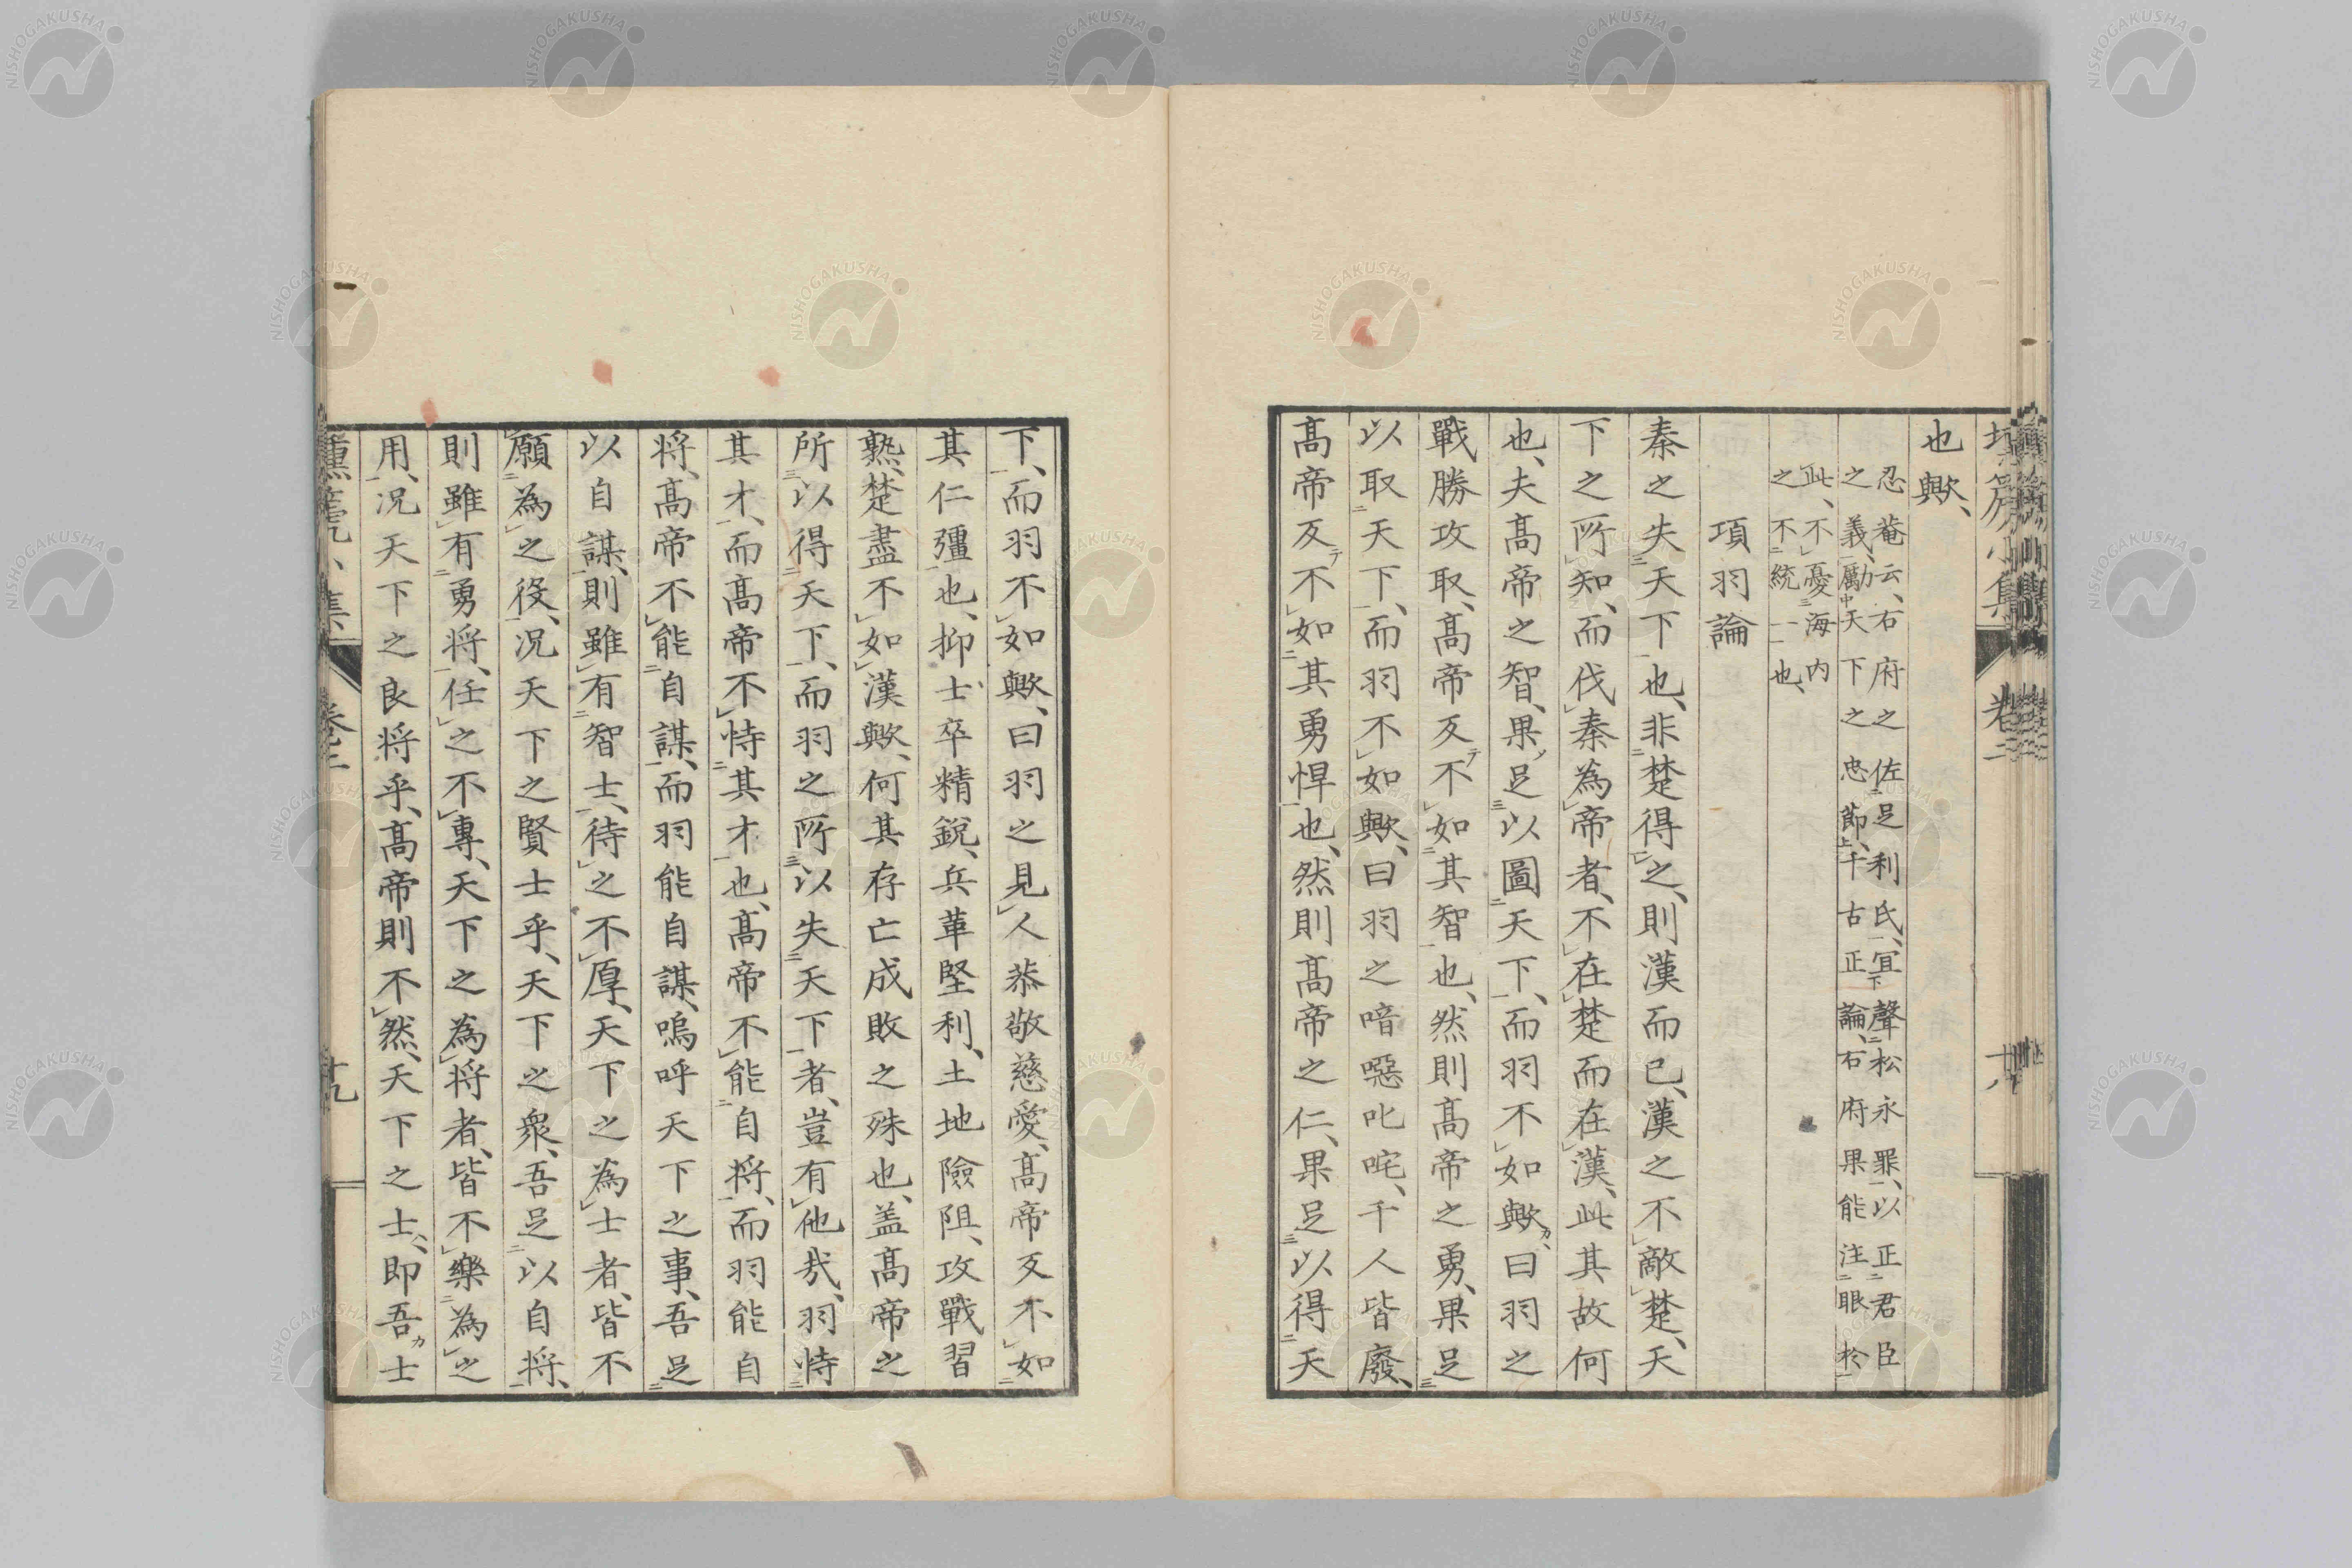 也歟、
忍菴云、右府之佐足利氏、宜聲松永罪、以正君臣
之義、勵天下之忠節、千古正論、右府果能注眼於
此、不憂海内
之不統一也、
項羽論
秦之失天下也、非楚得之、則漢而已、漢之不敵楚、天
下之所知、而伐秦為帝者、不在楚而在漢、此其故何
也、夫高帝之智、果足以圖天下、而羽不如歟、曰羽之
戰勝攻取、高帝反不如其智也、然則高帝之勇、果足
以取天下、而羽不如歟、曰羽之喑噁叱咤、千人皆廢、
高帝反不如其勇悍也、然則高帝之仁、果足以得天
下、而羽不如歟、曰羽之見人恭敬慈愛、高帝反不如
其仁彊也、抑士卒精銳、兵革堅利、土地險阻、攻戰習
熟、楚盡不如漢歟、何其存亡成敗之殊也、盖高帝之
所以得天下、而羽之所以失天下者、豈有他哉、羽恃
其才、而高帝不恃其才也、高帝不能自將、而羽能自
将、高帝不能自謀、而羽能自謀、嗚呼天下之事、吾足
以自謀、則雖有智士、待之不厚、天下之為士者、皆不
願為之役、况天下之賢士乎、天下之衆、吾足以自将、
則雖有勇将、任之不專、天下之為将者、皆不樂為之
用、况天下之良将乎、高帝則不然、天下之士、即吾士
壎箎小集 卷二 十九